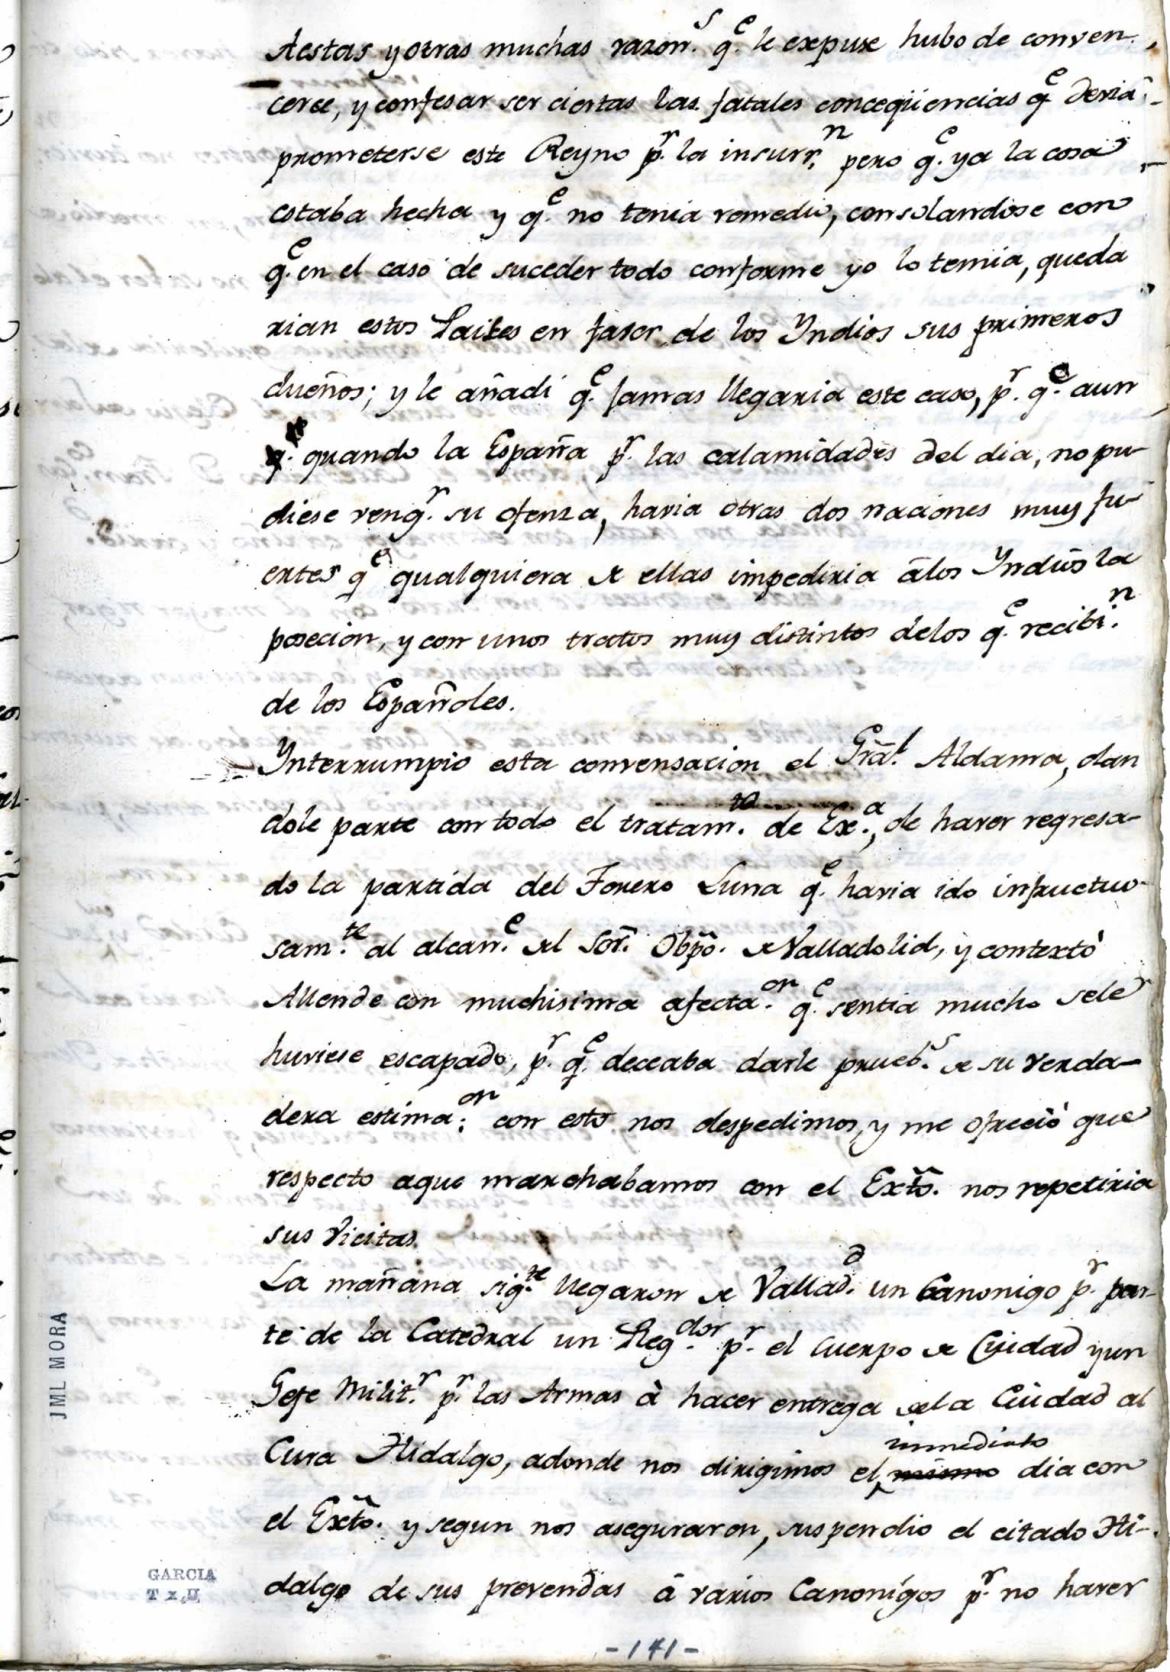 Aestas y otras muchas razon.s q.e le expuse hubo de conven-
cerse, y confesar ser ciertas las fatales conceqüencias q.e devia
prometerse este Reyno p.r la insurr.n pero q.e ya la cosa
estaba hecha y q.e no tenia remedio, consolandose con
q.e en el caso de suceder todo conforme yo lo temia, queda
rian estos Paises en favor de los Yndios sus primeros
dueños; y le añadi q.e jamas llegaria este caso, p.r q.e aun
quando la España p.r las calamidades del dia, no pu-
diese veng.r su ofenza, havia otras dos naciones muy fu-
ertes q.e qualquiera de ellas impediria âlos Yndios la
posecion, y con unos tratos muy distintos delos q.e recibi.n
de los Españoles.
Ynterrumpio esta convensacion el Grãl. Aldama, dan
dole parte con todo el tratam.to de Ex.a, de haver regresa-
do la partida del Torero Luna q.e havia ido infructuo-
sam.te al alcan.e del Sor. Obpõ. de Valladolid, y contextó
Allende con muchisima afecta.on q.e sentia mucho sele
huviese escapado, p.r q.e deceaba darle prueb.s de su verda-
dera estima.on con esto nos despedimos, y me ofreció que
respecto aque marchabamos con el Exto. nos repetiria
sus vicitas.
La mañana sig.te llegaron de Vallad.d un Canonigo p.r par-
te de la Catedral un Reg.dor p.r el Cuerpo de Ciudad y un
Gefe Milit.r p.r las Armas à hacer entrega dela Ciudad al
Cura Hidalgo, adonde nos dirigimos el mismo inmediato dia con
el Exto. y segun nos aseguraron, suspendio el citado Hi-
dalgo de sus prevendas â varios Canonigos p.r no haver
JML MORA
GARCIA
-141-